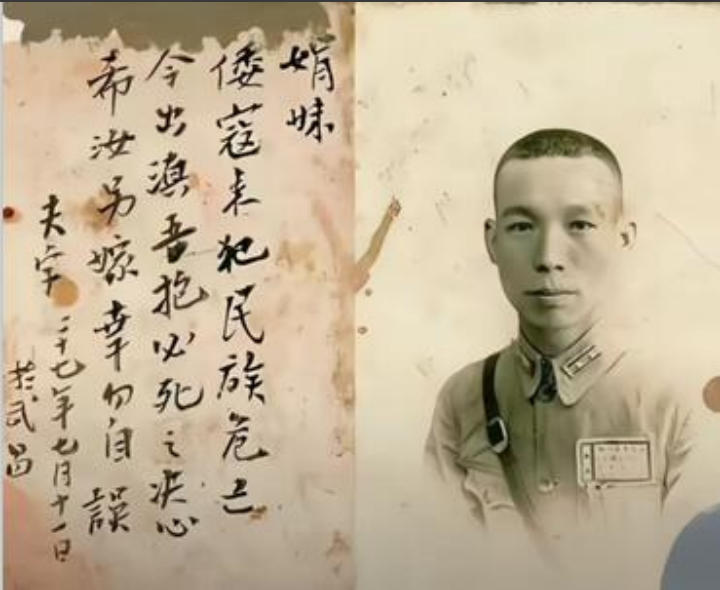 娟妹
倭寇来犯民族危亡
今出滇吾抱必死之决心
希汝另嫁幸勿自誤
夫字
二十七年七月十一日
於武昌